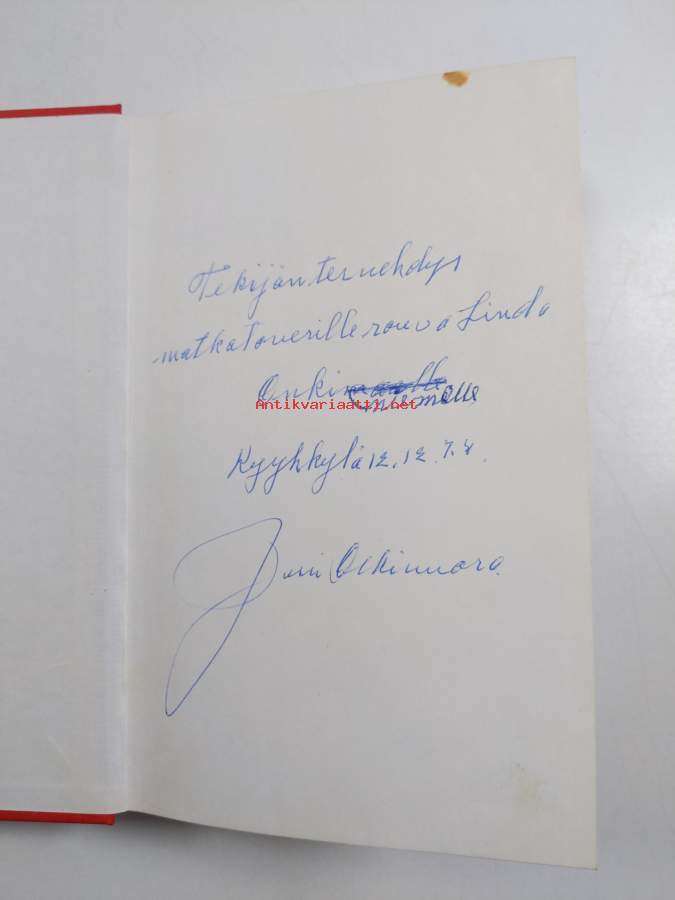 Tekijän tervehdys
matkatoverille rouva Linda
Onkiniemelle
Antikvariaatti.net
Kyyhkylä 12.12.78.
Jussi Olkinuora